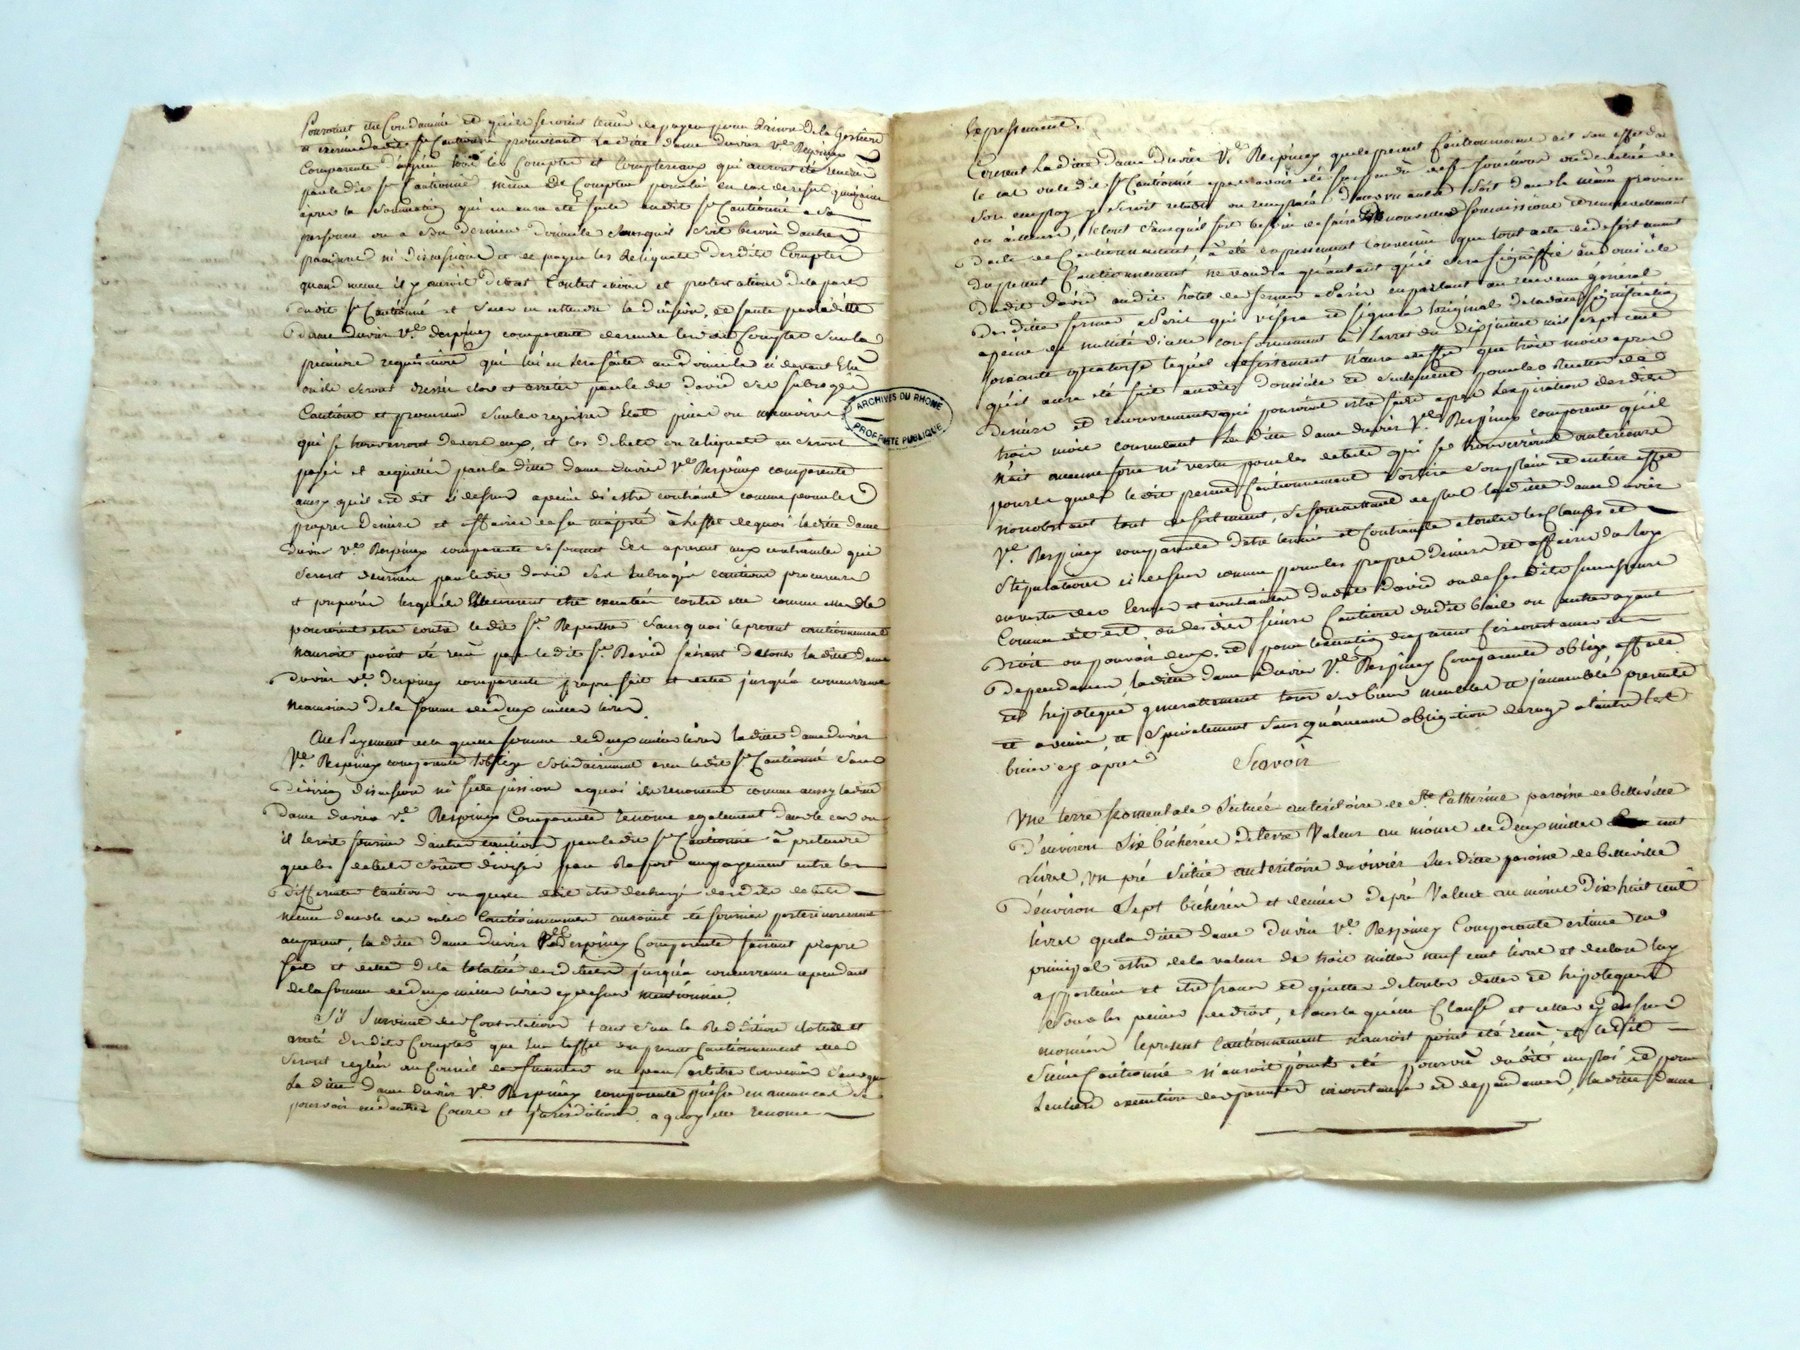 pouroient être Condamnés et qu'ils seroient tenus de payer pour raison de la Gestion
et exercice dudit Sr. Cautionné promettant La ditte dame duvir Ve. Respiney
Comparente d'agréer tous les Comptes et bordereaux qui auront été rendus
par le dit Sr. Cautionné même de Compter pour lui en cas de refus quinzaine
après la Sommation qui en aura été faite audit Sr. Cautionné a Sa
personne ou a Son dernier domicile Sans qu'il Soit besoin d'autres
procedures ni discussions et de payer les Reliquats desdits Comptes
quand meme il y auroit debat Contestations et protestations de la part
dudit Sr. Cautionné et Sans en attendre la décision, et faute par la ditte
dame duvir Ve. Respiney comparente de rendre lesdits Comptes Sur la
premiere requisition qui lui en Sera faite au domicile ci devant Elu
ou ils Seront dressés clos et arretés par le dit david Ses Subrogés
Cautions et procureurs Sur les registres Etats pieces ou memoires
qui se trouveront devers eux, et les debets ou reliquats en Seront
payés et acquittés par la ditte dame duvir Ve. Respiney comparente
ainsy qu'il est dit ci dessus a peine d'y estre contrainte comme pour les
propres Deniers et affaires de Sa majesté à l'effet de quoi la ditte dame
duvir Ve. Respiney comparente se Soumet des apresent aux contraintes qui
Seront decernées par le dit david Ses Subrogés cautions procureurs
et preposés lesquelles
pouroient etre contre le dit Sr. Sans quoi le present cautionnement
nauroit point été reçu par le dit Sr. David faisant de tout la ditte dame
duvir Ve. Respiney comparente propre fait et dette jusqu'à concurrence
neanmoins de la Somme de deux milles livres.
Au Payement de la quelle somme de deux milles livres la ditte dame duvir
Ve. Respiney comparente s'oblige Solidairement avec le dit Sr. Cautionné Sans
division discussion ni fidejussion a quoi ils renoncent comme aussy la ditte
dame duvir Ve. Respiney Comparente renonce egalement dans le cas ou
il seroit fourni d'autres cautions par le dit Sr. Cautionné à pretendre
que les debets Soient divisés par Raport au payement entre les
differentes Cautions ou quelle doit etre dechargé desdits debets
même dans le cas ou les Cautionnemens auroient été fournies posterieurement
au present, la ditte dame duvir Ve. Respiney Comparente faisant propre
fait et dette de la totalité desdittes jusqu'à concurrence cependant
de la Somme de deux milles livres cy dessus mentionnée.
S'il Survient des Contestations tant Sur la Reddition cloture et
areté desdits Comptes que Sur l'effet du present Cautionnement elles
Seront reglées au Conseil des fermes ou par arbitre convenû Sans que
La ditte dame duvir Ve. Respiney comparente puisse en aucun cas Se
pourvoir en d'autres Cours et Jurisdictions a quoy elle renonce
Expressement.
Consent La ditte dame duvir Ve. Respiney que le present Cautionnement ait Son effet dans
le cas ou le dit Sr. Cautionné apres avoir été suspendu de Ses fonctions ou destitué de
Son employ y Seroit retabli ou remplacé dans un autre Soit dans la même province
ou ailleurs, le tout Sans qu'il Soit besoin de faire de nouvelles Soumissions et renouvellement
d'acte de Cautionnement, a été expressement convenu que tout acte de desistement
du present Cautionnement ne vaudra qu'autant qu'il Sera Signiffié au domicile
dudit David audit hôtel des fermes a Paris en parlant au receveur général
desdittes fermes a Paris qui visera et signera l'original de la ditte Signification
a peine de nullité d'icelle conformement a l'arret du dix juillet mil sept cent
soixante quatorze lequel desistement n'aura d'effet que trois mois apres
qu'il aura été fait audit domicile et Seulement pour les Recettes des
deniers et recouvremens qui pouroient estre faits apres l'expiration desdits
trois mois consentant La ditte dame duvir Ve. Respiney comparente qu'il
n'ait aucune force ni vertu pour les debets qui se trouverront anterieurs
pour les quels le dit present Cautionnement Sortira Son plein et entier effet
nonobstant tout desistement, Se Soumettant de plus la ditte dame duvir
Ve. Respiney comparente d'etre tenue et contrainte a toutes les Clauses et
Stipulations ci dessus comme pour les propres deniers et affaires du Roy
en vertu des termes et contraintes dudit David ou de Ses dits Successeurs
Comme dit est, ou des dits Sieurs Cautions dudit bail ou autres ayant
droit ou pouvoir d'eux. et pour l'execution du present circonstances et
dependances la ditte dame duvir Ve. Respiney Comparente oblige affecte
et hypotequé generallement tous Ses biens meubles et jmmeubles presents
et avenir, et Specialement Sans qu'aucune obligation deroge a l'autre les
biens cy après
Scavoir
Une terre fromentale Scituée au teritoire de Ste. Catherine paroisse de belleville
d'environ Six bicherées de terre valeur au moins de deux milles cent
Livres, un pré Scitué au teritoire du vivier Sus ditte paroisse de belleville
d'environ Sept bicherées et demies de pré valeur au moins dix huit cent
livres que la ditte dame duvir Ve. Respiney Comparente estime en
principal estre de la valeur de trois milles neuf cent livres et declare luy
appartenir et être francs et quittes de toutes dettes et hypoteques
Sous les peines de droit, Sans la quelle Clause et celles cy dessus
enoncées le present Cautionnement n'auroit point été reçu et le dit
Sieur Cautionné n'auroit point été pourvu dudit employ et pour
l'entiere execution des presentes circonstances et dependances, la ditte Dame
ARCHIVES DU RHONE
PROPRIÉTÉ PUBLIQUE